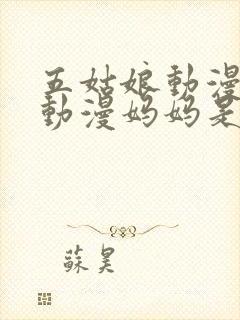 五姑娘動漫
動漫妈妈是
蘇昊